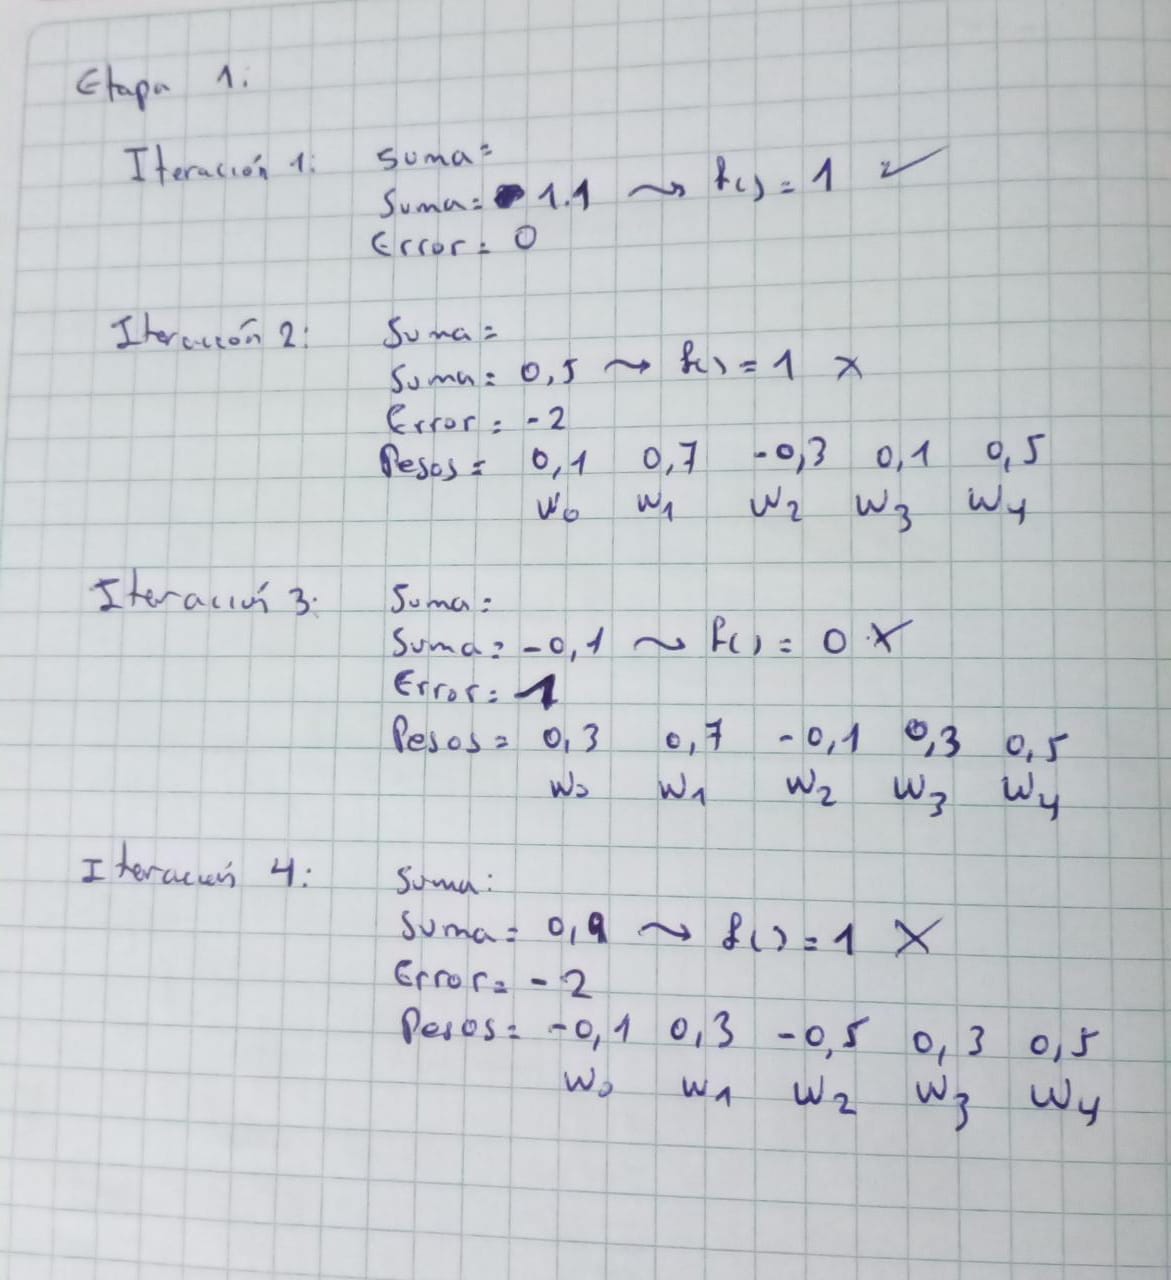 Etapa 1:
Iteración 1: Suma=
Suma= 1.1 ⤳ f()= 1 ✓
Error= 0
Iteración 2: Suma=
Suma= 0,5 ⤳ f()= 1 X
Error= -2
Pesos= 0,1 0,7 -0,3 0,1 0,5
W0 W1 W2 W3 W4
Iteración 3: Suma:
Suma= -0,1 ⤳ f()= 0 X
Error= 1
Pesos= 0,3 0,7 -0,1 0,3 0,5
W0 W1 W2 W3 W4
Iteración 4: Suma:
Suma= 0,9 ⤳ f()= 1 X
Error= -2
Pesos= -0,1 0,3 -0,5 0,3 0,5
W0 W1 W2 W3 W4